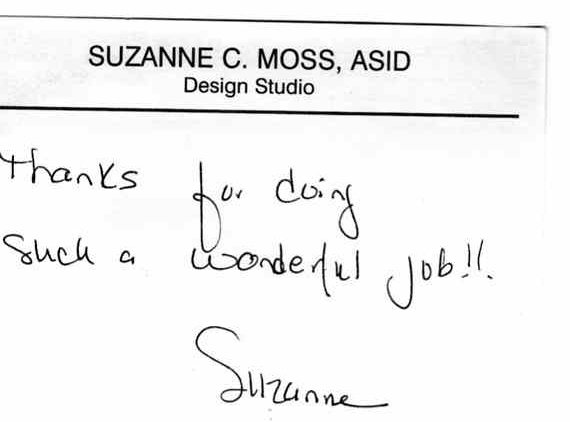 SUZANNE C. MOSS, ASID
Design Studio
Thanks for doing
Such a wonderful job!!
Suzanne